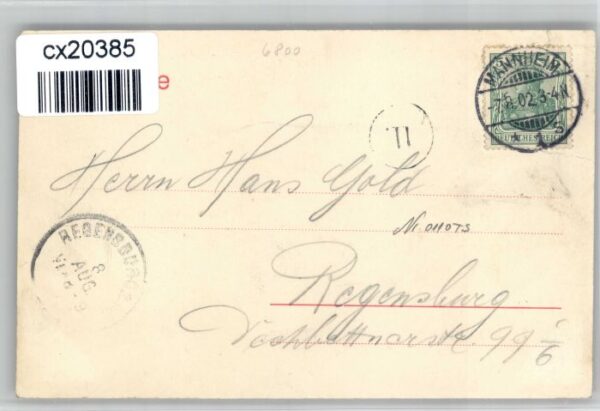 cx20385
6800
e
MANNHEIM
DEUTSCHES REICH
11.
Herrn Hans Gold
REGENSBURG
8
AUG.
Regensburg
99 1/6